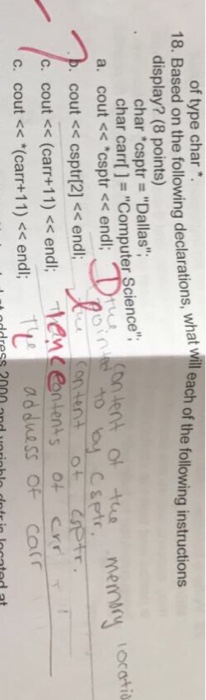 of type char *.
18. Based on the following declarations, what will each of the following instructions
display? (8 points)
char *csptr = "Dallas";
char carr[ ] = "Computer Science";
a. cout << *csptr << endl; D the content of the memory locatio
pointed to by csptr.
b. cout << csptr[2] << endl; l the content of csptr.
c. cout << (carr+11) << endl; ience contents of crr
c. cout << *(carr+11) << endl; The address of carr
address 2000 and variable dptr is located at